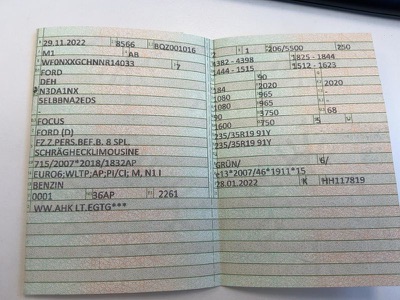 29.11.2022 8566 BQZ001016
M1 AB
WF0NXXGCHNNR14033 7
FORD
DEH
N3DA1NX
SELBBNA2EDS
FOCUS
FORD (D)
FZ.Z.PERS.BEF.B. 8 SPL.
SCHRÄGHECKLIMOUSINE
715/2007*2018/1832AP
EURO6;WLTP;AP;PI/CI; M, N1 I
BENZIN
0001 36AP 2261
WW.AHK LT.EGTG***
2 1 206/5500 250
4382 - 4398 1825 - 1844
1444 - 1515 1512 - 1623
90
184 2020 2020
1080 965
1080 965
90 3750 68
1600 750 5
235/35R19 91Y
235/35R19 91Y
GRÜN/ 6/
e13*2007/46*1911*15
28.01.2022 K HH117819